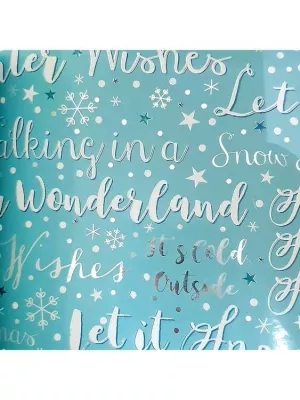 ter Wishes
Let
alking in a
Snow
Wonderland
Wishes
It's Cold
Outside
mas
Let it